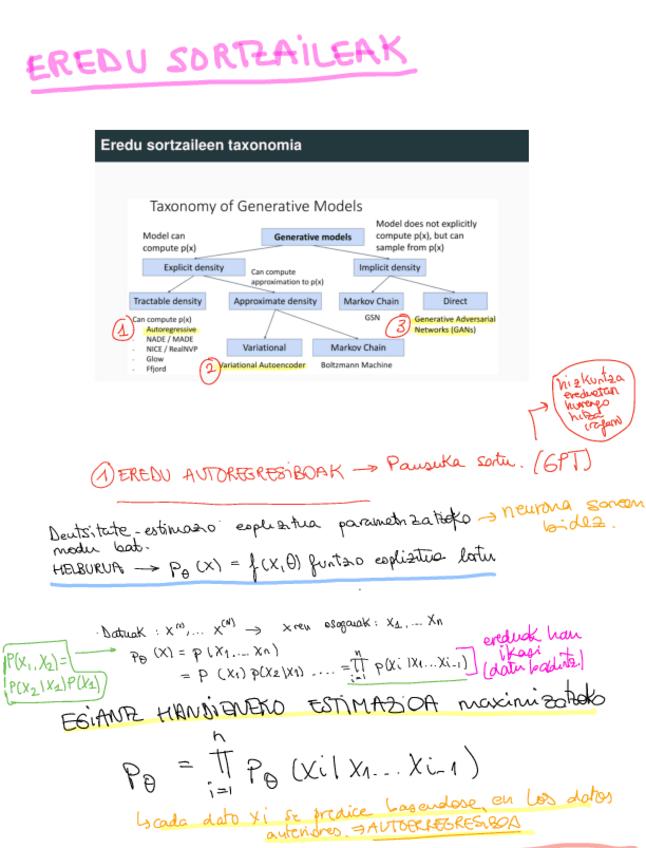 EREDU SORTZAILEAK
Eredu sortzaileen taxonomia
Taxonomy of Generative Models
Model can
compute p(x)
Generative models
Model does not explicitly
compute p(x), but can
sample from p(x)
Explicit density
Can compute
approximation to p(x)
Implicit density
Tractable density
Approximate density
Markov Chain
Direct
1
Can compute p(x)
Autoregressive
NADE / MADE
NICE / RealNVP
Glow
Ffjord
GSN
3
Generative Adversarial
Networks (GANs)
Variational
Markov Chain
2
Variational Autoencoder
Boltzmann Machine
hizkuntza
ereduetan
hurrengo
hitza
1 EREDU AUTOREGRESIBOAK → Pausuka sortu. (GPT)
Dentsitate-estimazio esplizitua parametrizatzeko → neurona sareen
modu bat. bidez.
HELBURUA → Pθ(x) = f(x,θ) funtzio esplizitua lortu
· Datuak : x⁽¹⁾, ... x⁽ᴺ⁾ → x-ren osagaiak : x₁, ... xn
P(x₁,x₂)=
P(x₂|x₁)P(x₁)
Pθ(x) = p(x₁, ... xn)
= p(x₁) p(x₂|x₁) .... = ∏ⁿᵢ₌₁ p(xi|x₁...xi-1)
ereduak hau
ikasi
(datu badituz)
EGIANTZ HANDIENEKO ESTIMAZIOA maximizatzeko
Pθ = ∏ⁿᵢ₌₁ Pθ(xi|x₁...xi-1)
↳ cada dato xi se predice basandose en los datos
anteriores. ⇒ AUTOERREGRESIBOA